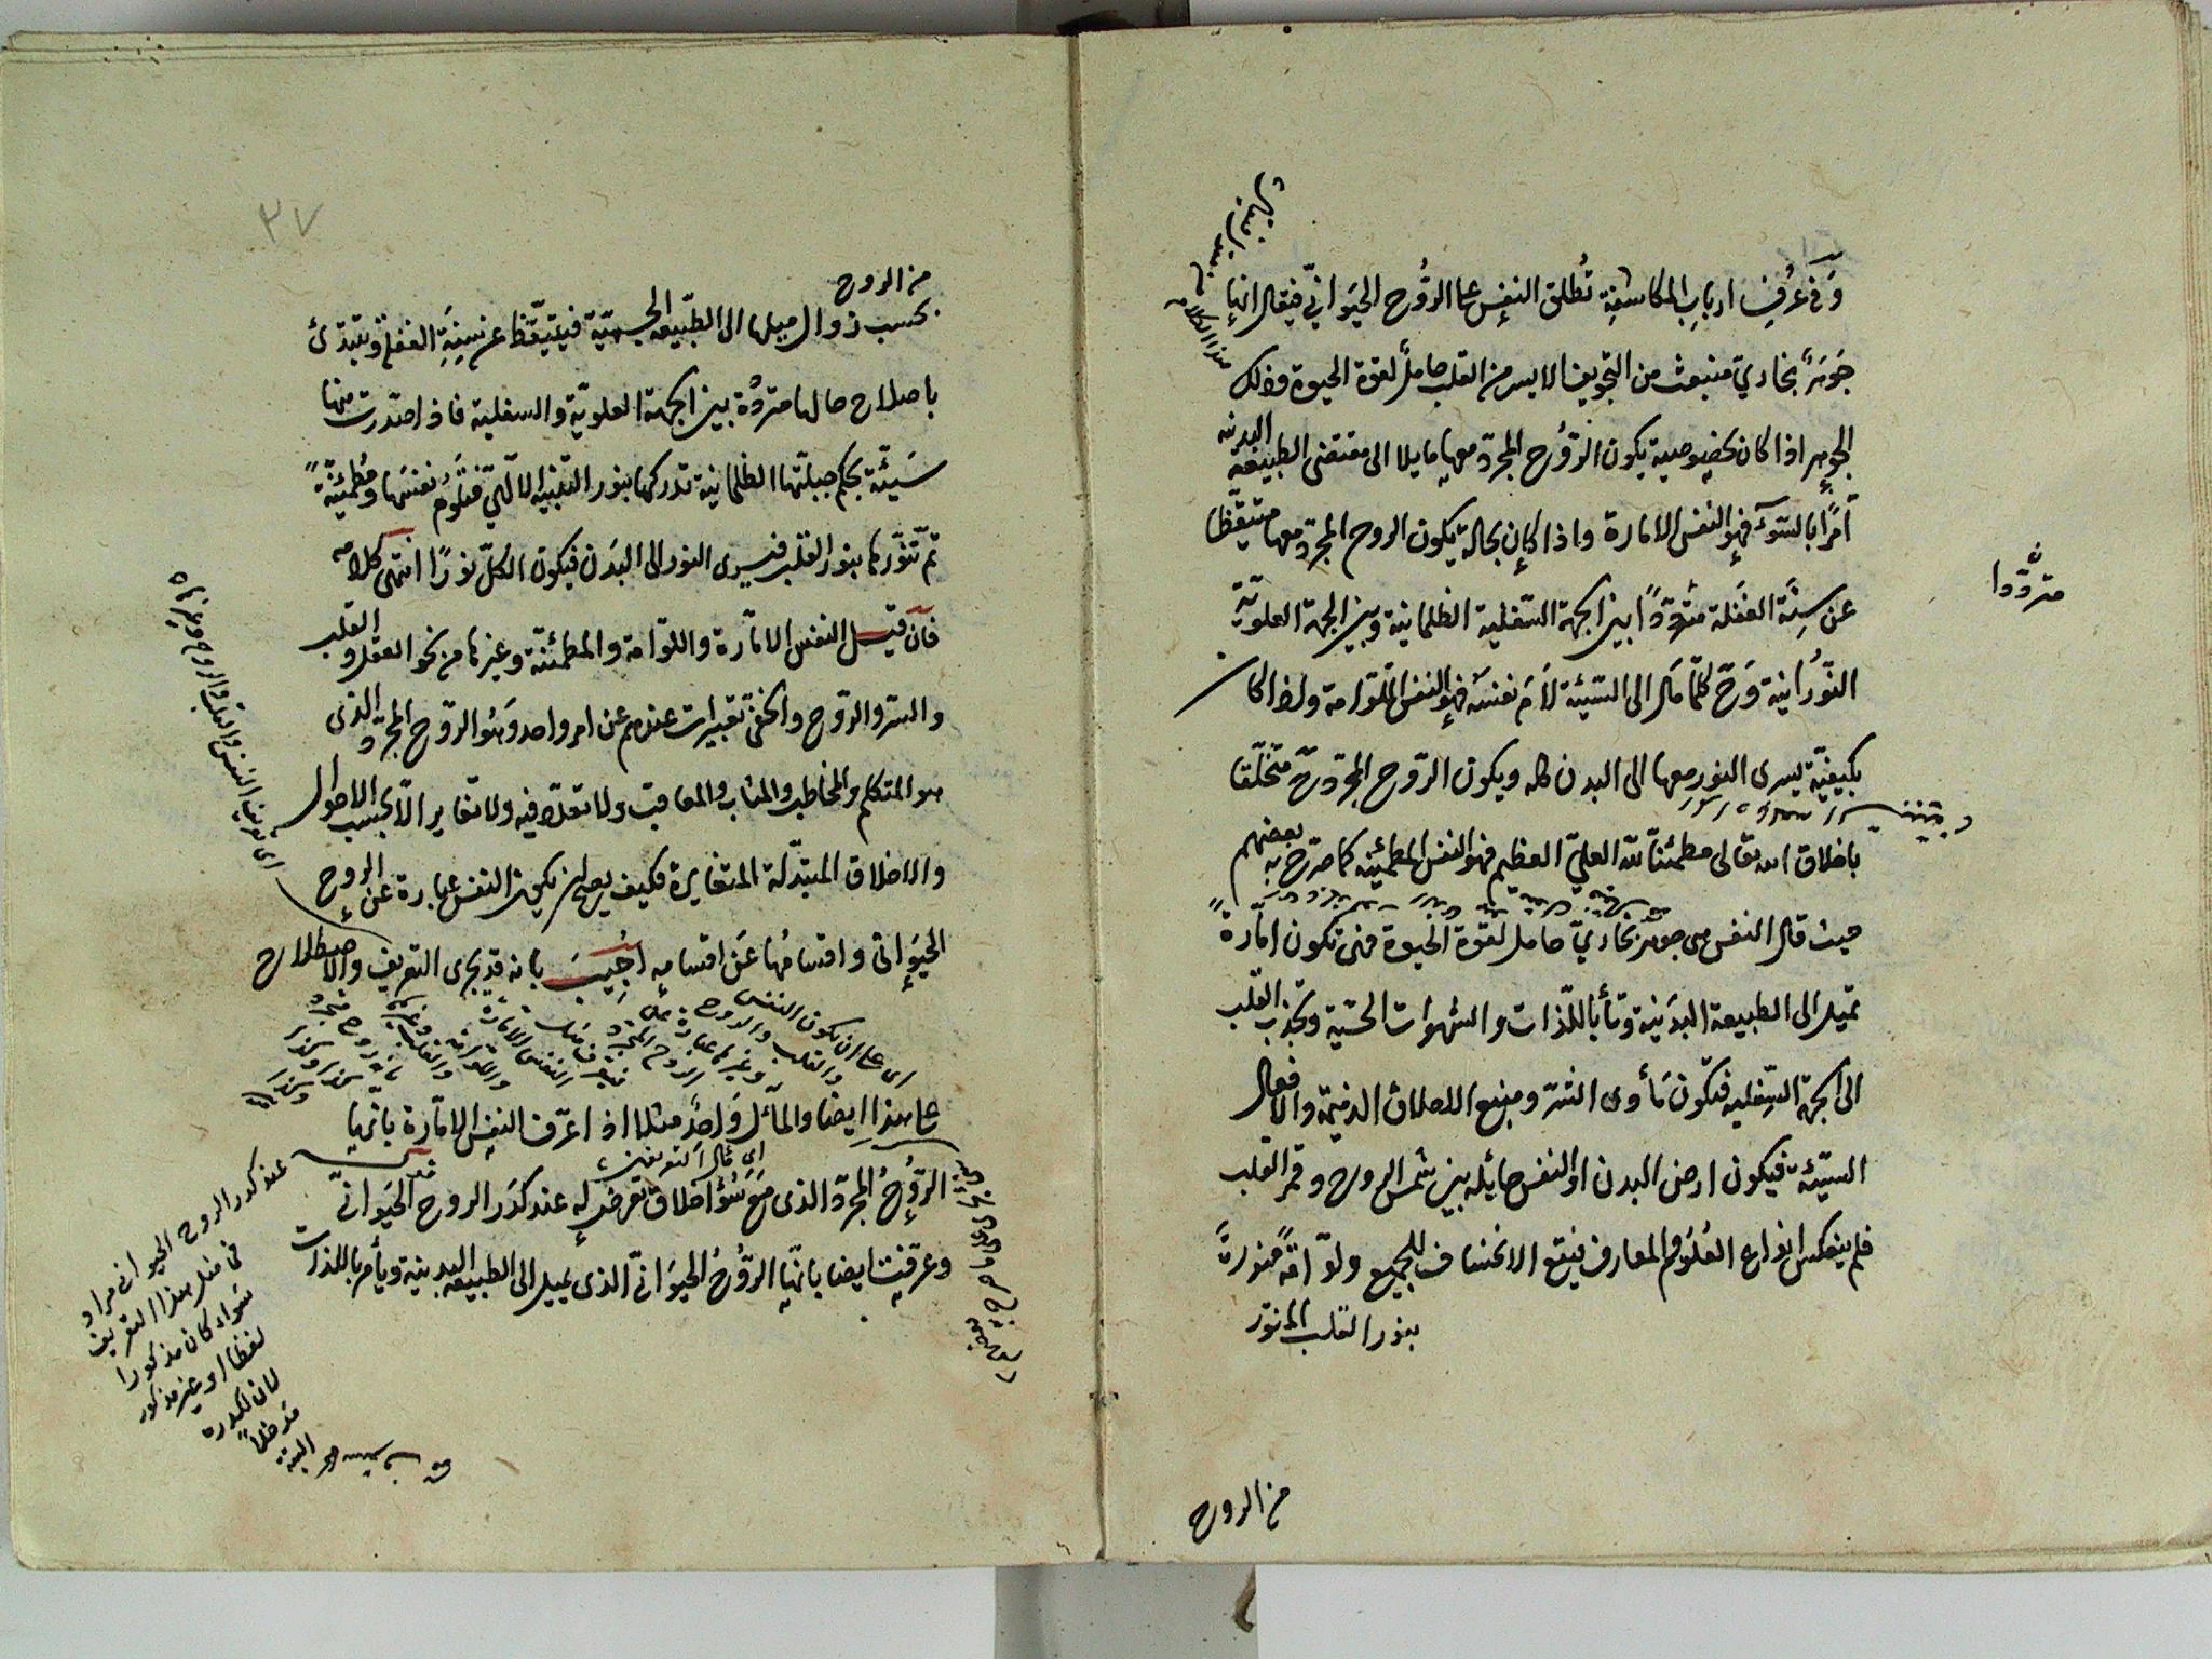 وَفى عُرفِ ارباب المكاشفة تُطلق النفس على الرّوُح الحيَوانيّ فيقال انها
جَوهَرٌ بخاريّ منبعث من التجويف الايسر من القلب حاملٌ لقوة الحيوة وذلك
الجوهر اذا كان بخصوصية يكون الرّوُح المجرّد معها مايلا الى مقتضى الطبيعة البدنية
آمرًا بالسّوء فهو النفس الامارة واذا كان بحالة يكون الروح المجرّد معها متيقّظا
عن سِنَة الغفلة متردّدًا بين الجهة السّفلية الظلمانية وبين الجهة العلويّة
النّوُرانية وَحَ كلّما مَال الى السّيئة لاَمَ نفسَه فهو النفس اللّوامة واذا كان
بكيفيّة يسرى النور معها الى البدن كله ويكون الرّوح المجرّد حَ متخلّقا
باخلاق الله تعالى مطمئنّا للّه العليّ العظيم فهو النفس المطمئنّة كما صرّح به بعضهم
حيث قال النفس هى جوهر بخاريّ حامل لقوة الحيوة فهى تكون امّارةً
تميل الى الطبيعة البدَنية وتأمر باللّذات والشهوات الحسّية وتجذب القلب
الى الجهة السّفليه فتكون مَأوى الشرّ ومنبع الاخلاق الذميمة والافعال
السيّئة فيكون ارض البدن او النفس حايله بين شمس الروح وقمر القلب
فلم ينعكس انواع العُلوُم والمعارف فيقع الانخساف للجميع ولوّامَةً منورةً
بنور القلب المنوّر
من الروح
متردّدا
٣٧
من الروح
بحسب زوال ميلها الى الطبيعة الجسميّة فيتيقّظ عن سِنَةِ الغفلة وتبتدئ
باصلاح حالها متردّدة بين الجهة العلويّة والسفلية فاذا صَدرت منها
سَيئّة بحكم جبلّتها الظلمانية تدركها بنور التنبيه الالهّي فتلُومُ نفسَها ومُطمئنّةً
تمّ تنوّرها بنور القلب فيسرى النور الى البدَن فيكون الكلّ نورًا انتهى كلامه
فان قيل النفس الامّارة واللوّامة والمطمئنّة وغيرها من نحو العقل والقلب
والسّر والرّوح والخفىّ تعبيرات عندهم عن امر واحد وَهُو الرّوح المجرّد الذى
هو المتكلم والمخاطب والمثاب والمعاقب ولا تعدّد فيه ولا تغاير الّا بحسب الاحوال
والاخلاق المتبدّلة المتغايرة فكيف يصح ان يكون النفس عبارة عن الروح
الحيَوانى واقسامُها عَن اقسامِه اجُيبَ بانه قد يجرى التعريف والاصطلاح
على هذا ايضا والمآل وَاحدٌ مثلا اذا عرّف النفس الامّارة بانّها
الرّوُحُ المجرّد الذى مَع سُوُء اخلاق تعرض له عند كدَر الروح الحيَوانىّ
وعرّفت ايضا بانّها الرّوُحُ الحيوَانىّ الذى يميل الى الطبيعة البدنية ويأمر باللذات
اى على ان يكون النفس
والقلب والروح
وغيرها عبارة عن
الروح المجرد
النفس الامارة
واللوامة
والقلب وغيرهم
كذا وكذا
اى مآل التعريفين
عند كدر الروح الحيوانى مراد
فى مثل هذا التعريف
سَواء كان مذكورا
لفظا او غير مذكور
لان لكدره
مدخلاً